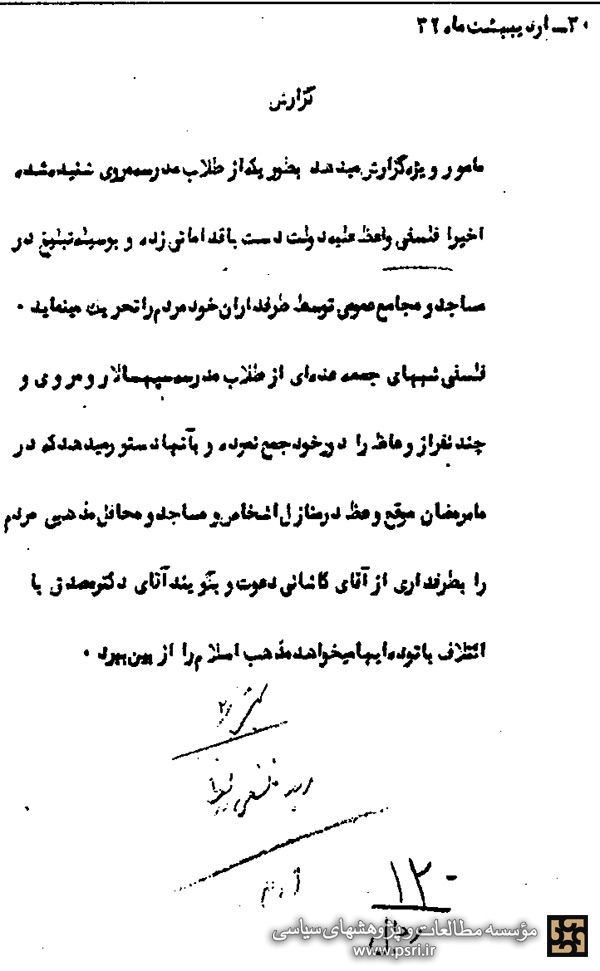 ۳۰ـ اردیبهشت ماه ۳۲
گزارش
مامور ویژه گزارش میدهد بطوریکه از طلاب مدرسه مروی شنیده شده
اخیرا فلسفی واعظ علیه دولت دست باقداماتی زده و بوسیله تبلیغ در
مساجد و مجامع عمومی توسط طرفداران خود مردم را تحریک مینماید ۰
فلسفی شبهای جمعه عده‌ای از طلاب مدرسه سپهسالار و مروی و
چند نفر از وعاظ را دور خود جمع نموده و بآنها دستور میدهد که در
ماه رمضان موقع وعظ در منازل اشخاص و مساجد و محافل مذهبی مردم
را بطرفداری از آقای کاشانی دعوت و بگویند آقای دکتر مصدق با
ائتلاف با توده ایها میخواهد مذهب اسلام را از بین ببرد ۰
۱۲۰
مؤسسه مطالعات و پژوهشهای سیاسی
www.psri.ir